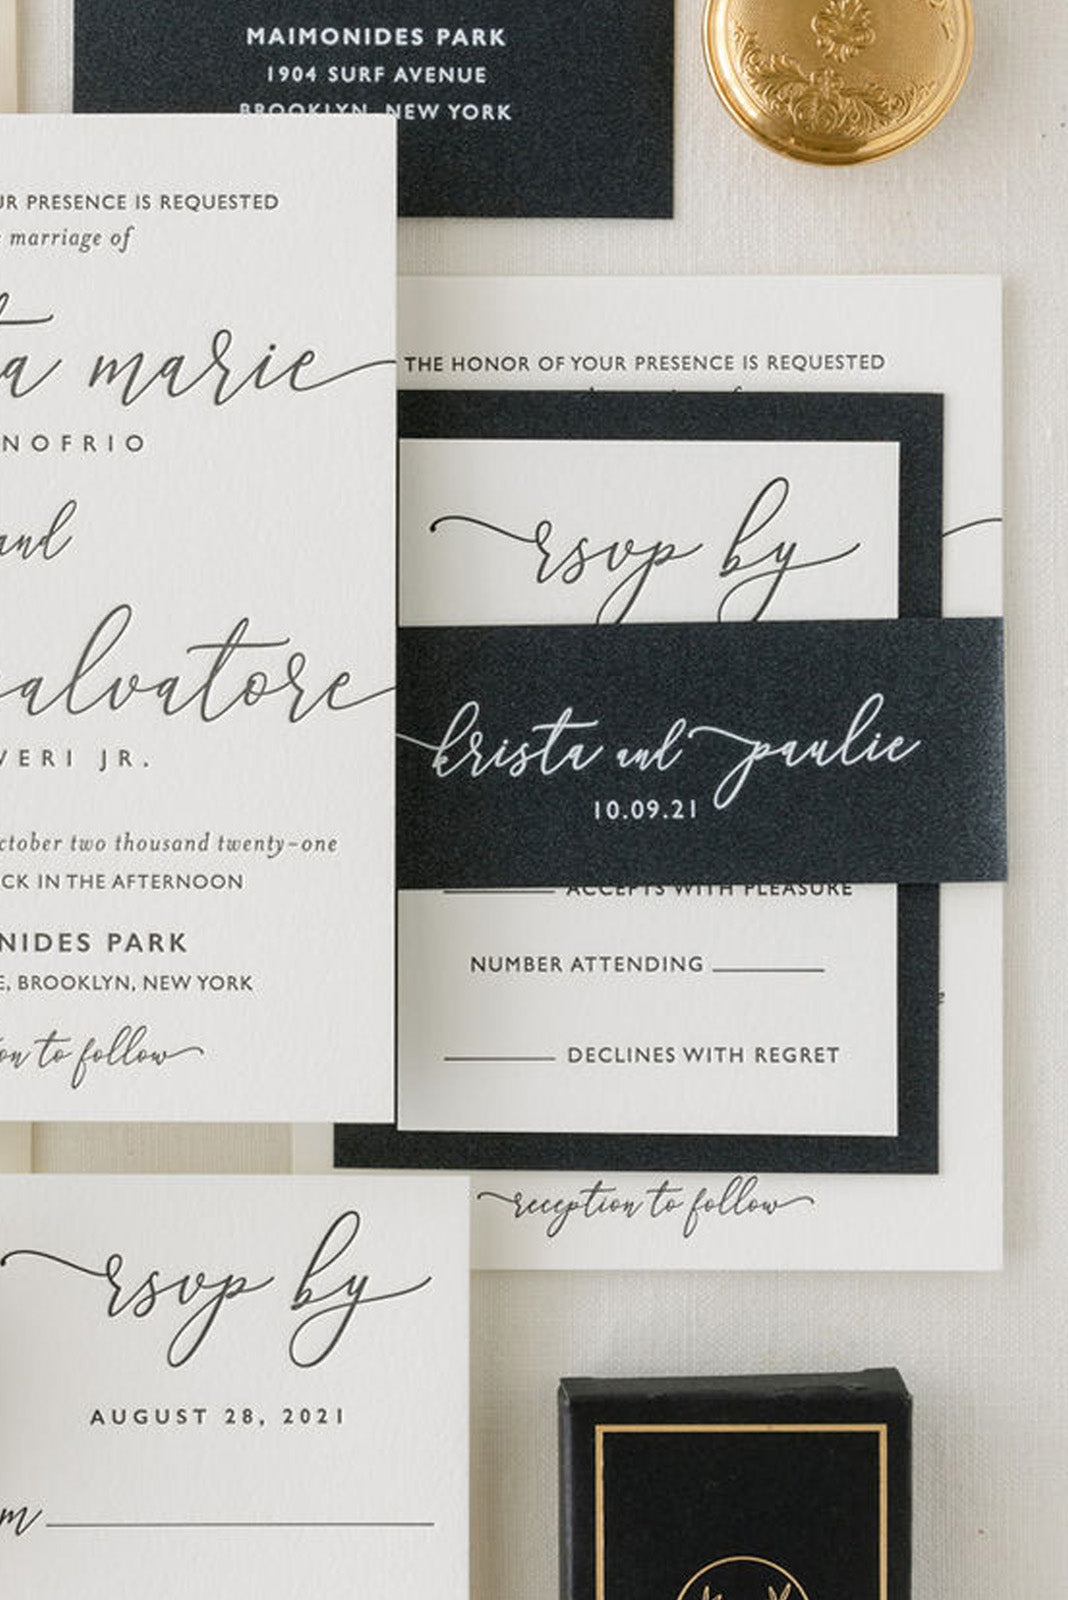 MAIMONIDES PARK
1904 SURF AVENUE
BROOKLYN, NEW YORK
PRESENCE IS REQUESTED
marriage of
marie
and
salvatore
JR.
two thousand twenty-one
IN THE AFTERNOON
PARK
BROOKLYN, NEW YORK
to follow
THE HONOR OF YOUR PRESENCE IS REQUESTED
rsvp by
krista and paulie
10.09.21
ACCEPTS WITH PLEASURE
NUMBER ATTENDING
DECLINES WITH REGRET
reception to follow
rsvp by
AUGUST 28, 2021
m